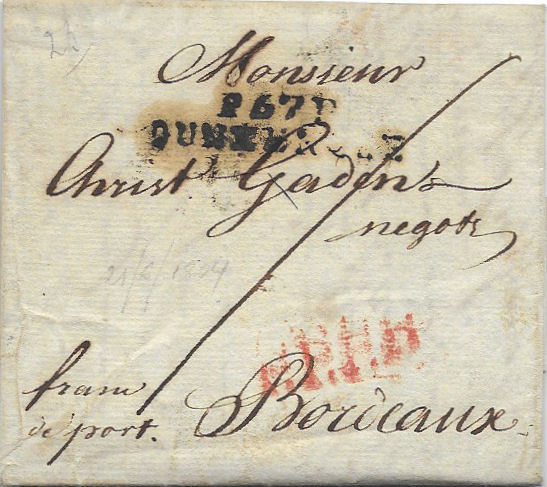 Monsieur
P67P
DUNKERQUE
Christ Gaden
negott
21/6/1834
P.P.P.P
franc
de port.
Bordeaux